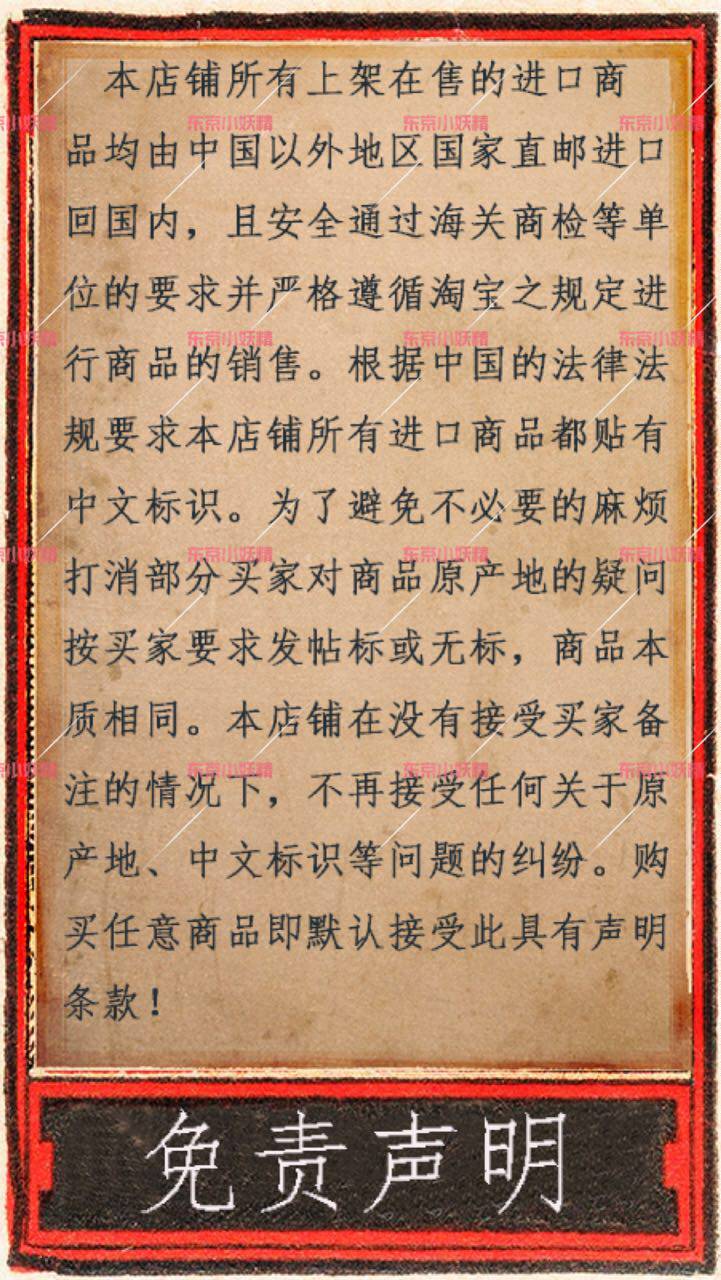 本店铺所有上架在售的进口商
品均由中国以外地区国家直邮进口
回国内，且安全通过海关商检等单
位的要求并严格遵循淘宝之规定进
行商品的销售。根据中国的法律法
规要求本店铺所有进口商品都贴有
中文标识。为了避免不必要的麻烦
打消部分买家对商品原产地的疑问
按买家要求发帖标或无标，商品本
质相同。本店铺在没有接受买家备
注的情况下，不再接受任何关于原
产地、中文标识等问题的纠纷。购
买任意商品即默认接受此具有声明
条款！
免责声明
东京小妖精